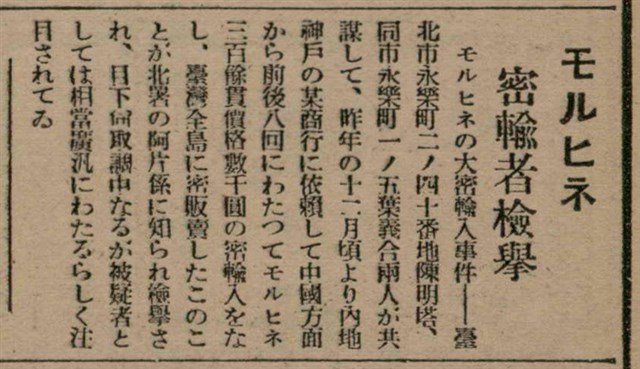 モルヒネ
密輸者檢擧
モルヒネの大密輸入事件――臺
北市永樂町二ノ四十番地陳明塔、
同市永樂町一ノ五葉義合兩人が共
謀して、昨年の十二月頃より內地
神戶の某商行に依賴して中國方面
から前後八回にわたつてモルヒネ
三百餘貫價格數千圓の密輸入をな
し、臺灣全島に密販賣したこのこ
とが北署の阿片係に知られ檢擧さ
れ、目下何取調中なるが被疑者と
しては相當廣汎にわたるらしく注
目されてゐ